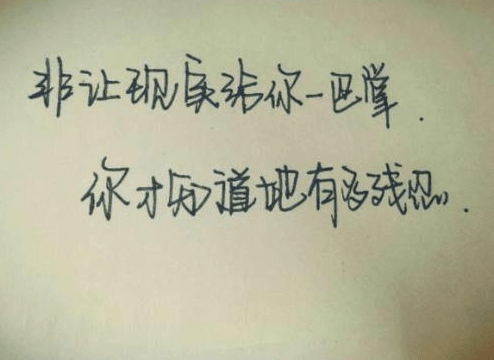 非让现实给你一巴掌.
你才知道他有多残忍.